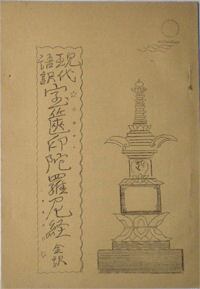 現代
語訳
宝篋印陀羅尼経 全訳